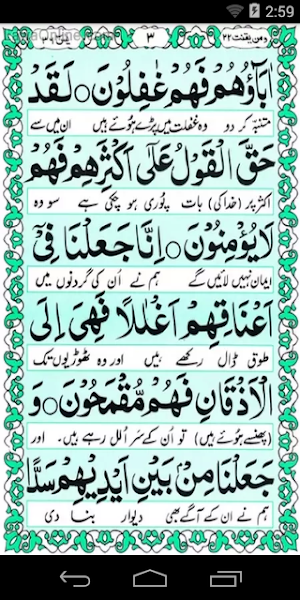 2:59
ومن یقنت ۲۲
۳
یٰسٓ ۳۶
اٰبَآؤُهُمْ فَهُمْ غٰفِلُوْنَ○لَقَدْ
متنبّہ کر دو وہ غفلت میں پڑے ہوئے ہیں ان میں سے
حَقَّ الْقَوْلُ عَلٰٓى اَكْثَرِهِمْ فَهُمْ
اکثر پر (خدا کی) بات پوری ہو چکی ہے سو وہ
لَا يُؤْمِنُوْنَ○اِنَّا جَعَلْنَا فِىْٓ
ایمان نہیں لائیں گے ہم نے اُن کی گردنوں میں
اَعْنَاقِهِمْ اَغْلٰلًا فَهِىَ اِلَى
طوق ڈال رکھے ہیں اور وہ ٹھوڑیوں تک
الْاَذْقَانِ فَهُمْ مُّقْمَحُوْنَ○وَ
(پھنسے ہوئے ہیں) تو اُن کے سَر اُلل رہے ہیں۔ اور
جَعَلْنَا مِنْۢ بَيْنِ اَيْدِيْهِمْ سَدًّا
ہم نے ان کے آگے بھی دیوار بنا دی